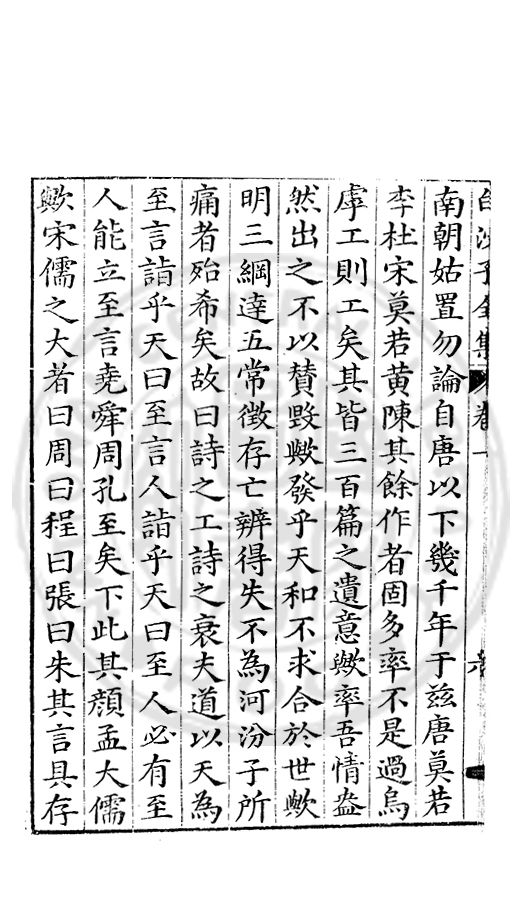 白沙子全集 卷一
南朝姑置勿論自唐以下幾千年于茲唐莫若
李杜宋莫若黃陳其餘作者固多率不是過烏
虖工則工矣其皆三百篇之遺意歟率吾情盎
然出之不以贊毀歟發乎天和不求合於世歟
明三綱達五常徵存亡辨得失不為河汾子所
痛者殆希矣故曰詩之工詩之衰夫道以天為
至言詣乎天曰至言人詣乎天曰至人必有至
人能立至言堯舜周孔至矣下此其顏孟大儒
歟宋儒之大者曰周曰程曰張曰朱其言具存